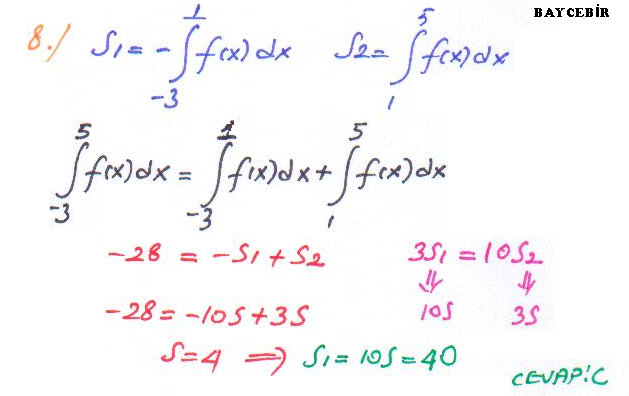 BAYCEBİR
8./ S1 = -∫_{-3}^{1} f(x)dx S2 = ∫_{1}^{5} f(x)dx
∫_{-3}^{5} f(x)dx = ∫_{-3}^{1} f(x)dx + ∫_{1}^{5} f(x)dx
-28 = -S1 + S2 3S1 = 10S2
⇓ ⇓
-28 = -10S + 3S 10S 3S
S = 4 ⇒ S1 = 10S = 40
CEVAP: C